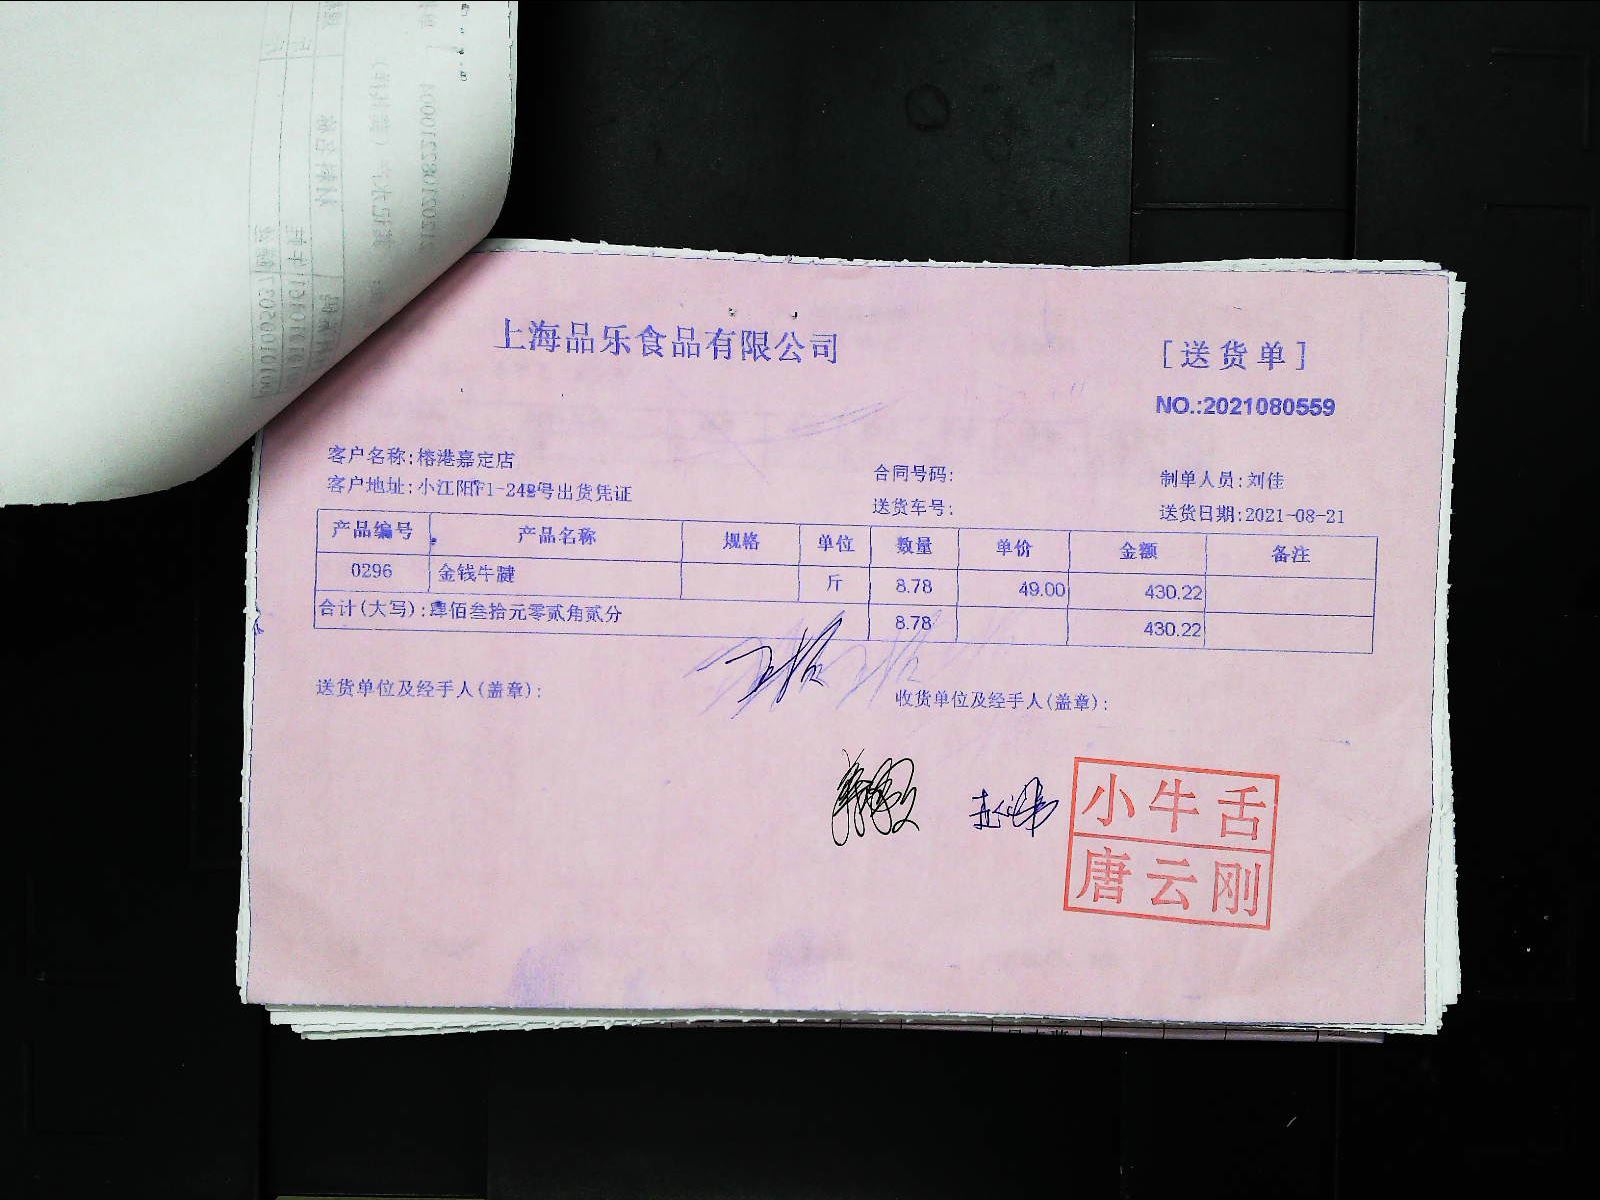 上海品乐食品有限公司
[送货单]
NO.:2021080559
客户名称:榕港嘉定店
合同号码:
制单人员:刘佳
客户地址:小江阳1-248号出货凭证
送货车号:
送货日期:2021-08-21
产品编号 产品名称 规格 单位 数量 单价 金额 备注
0296 金钱牛腱 斤 8.78 49.00 430.22
合计(大写):肆佰叁拾元零贰角贰分 8.78 430.22
送货单位及经手人(盖章):
收货单位及经手人(盖章):
小牛舌
唐云刚